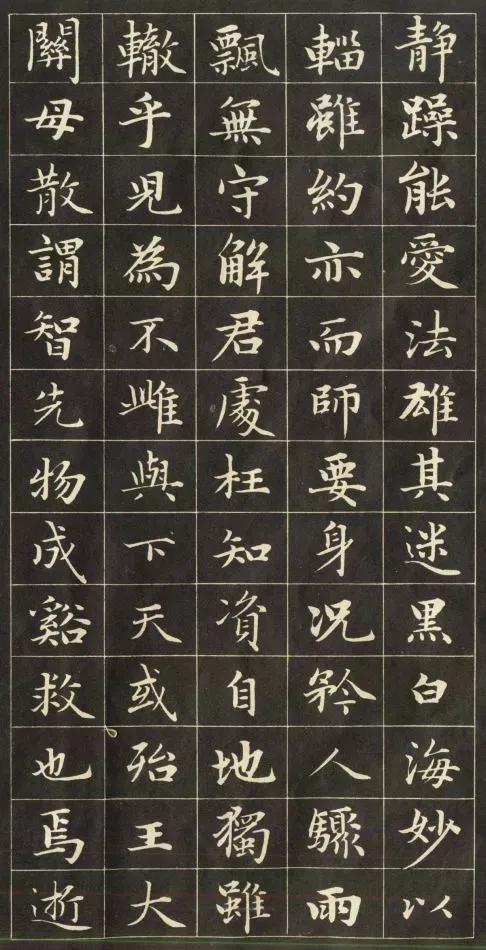 静躁能愛法雄其迷黑白海妙以
輜雖約亦而師要身況矜人驟雨
飄無守解君處枉知資自地獨雖
轍乎児為不雌與下天或殆王大
關母散謂智先物成谿救也焉逝